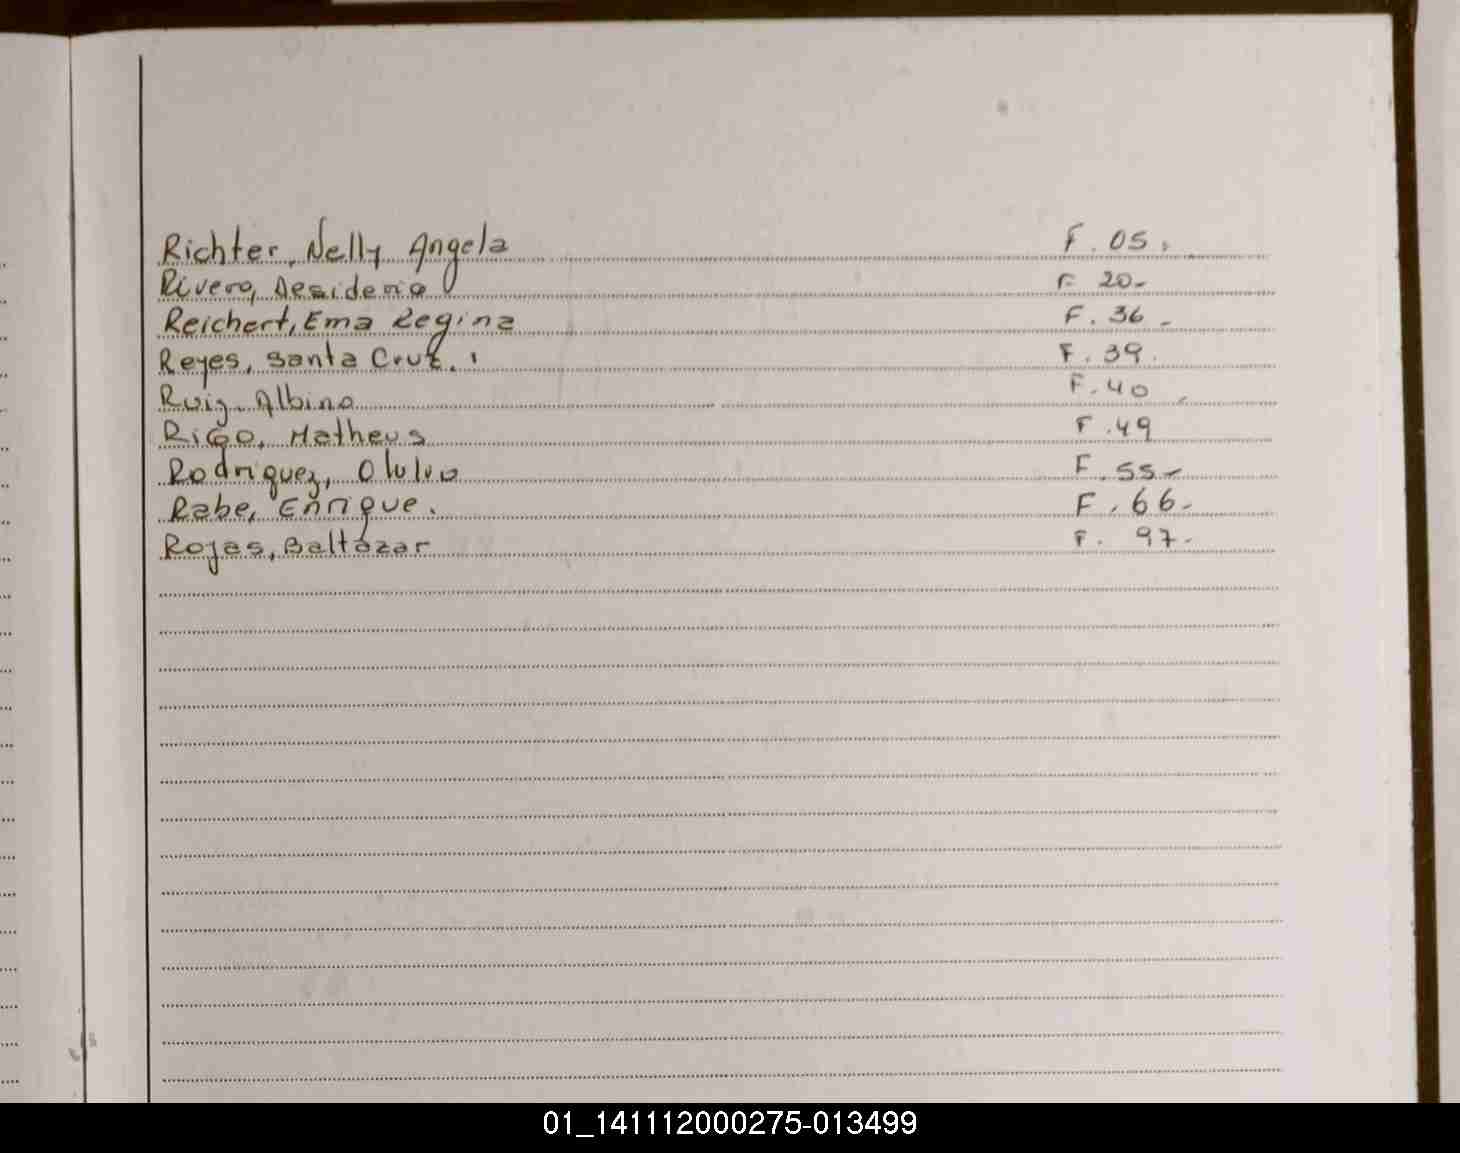 Richter, Nelly Angela F. 05.
Rivero, Desiderio F. 20-
Reichert, Ema Regina F. 36-
Reyes, Santa Cruz. F. 39.
Ruiz Albino F. 40
Rigo, Matheus F. 49
Rodriguez, F. 55-
Rabe, Enrique. F. 66-
Rojas, Baltazar F. 97-
01_141112000275-013499